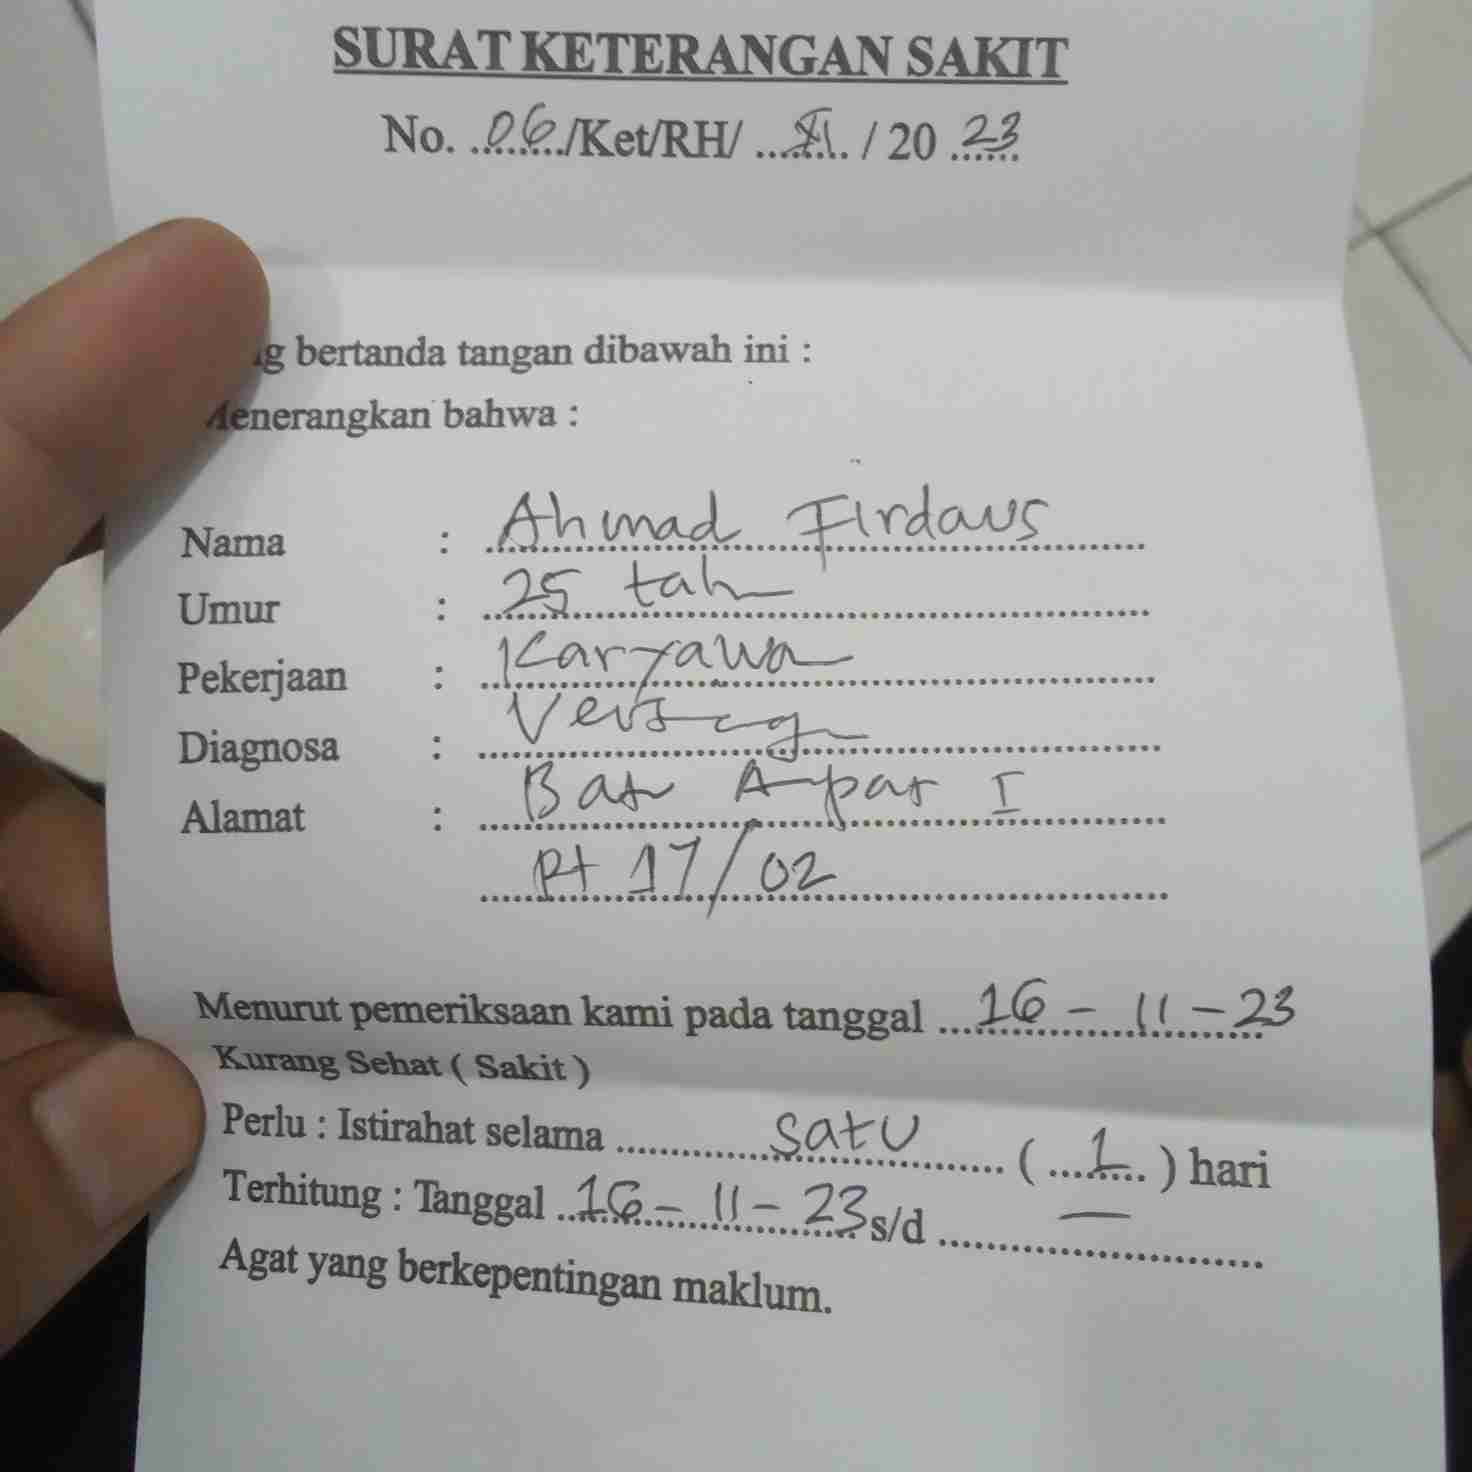 SURAT KETERANGAN SAKIT
No. 06/Ket/RH/ XI / 20 23
bertanda tangan dibawah ini :
Menerangkan bahwa :
Nama : Ahmad Firdaus
Umur : 25 tah
Pekerjaan : Karyawa
Diagnosa :
Alamat : Apar I
Rt 17/02
Menurut pemeriksaan kami pada tanggal 16-11-23
Kurang Sehat ( Sakit )
Perlu : Istirahat selama satu ( 1 ) hari
Terhitung : Tanggal 16-11-23 s/d —
Agat yang berkepentingan maklum.